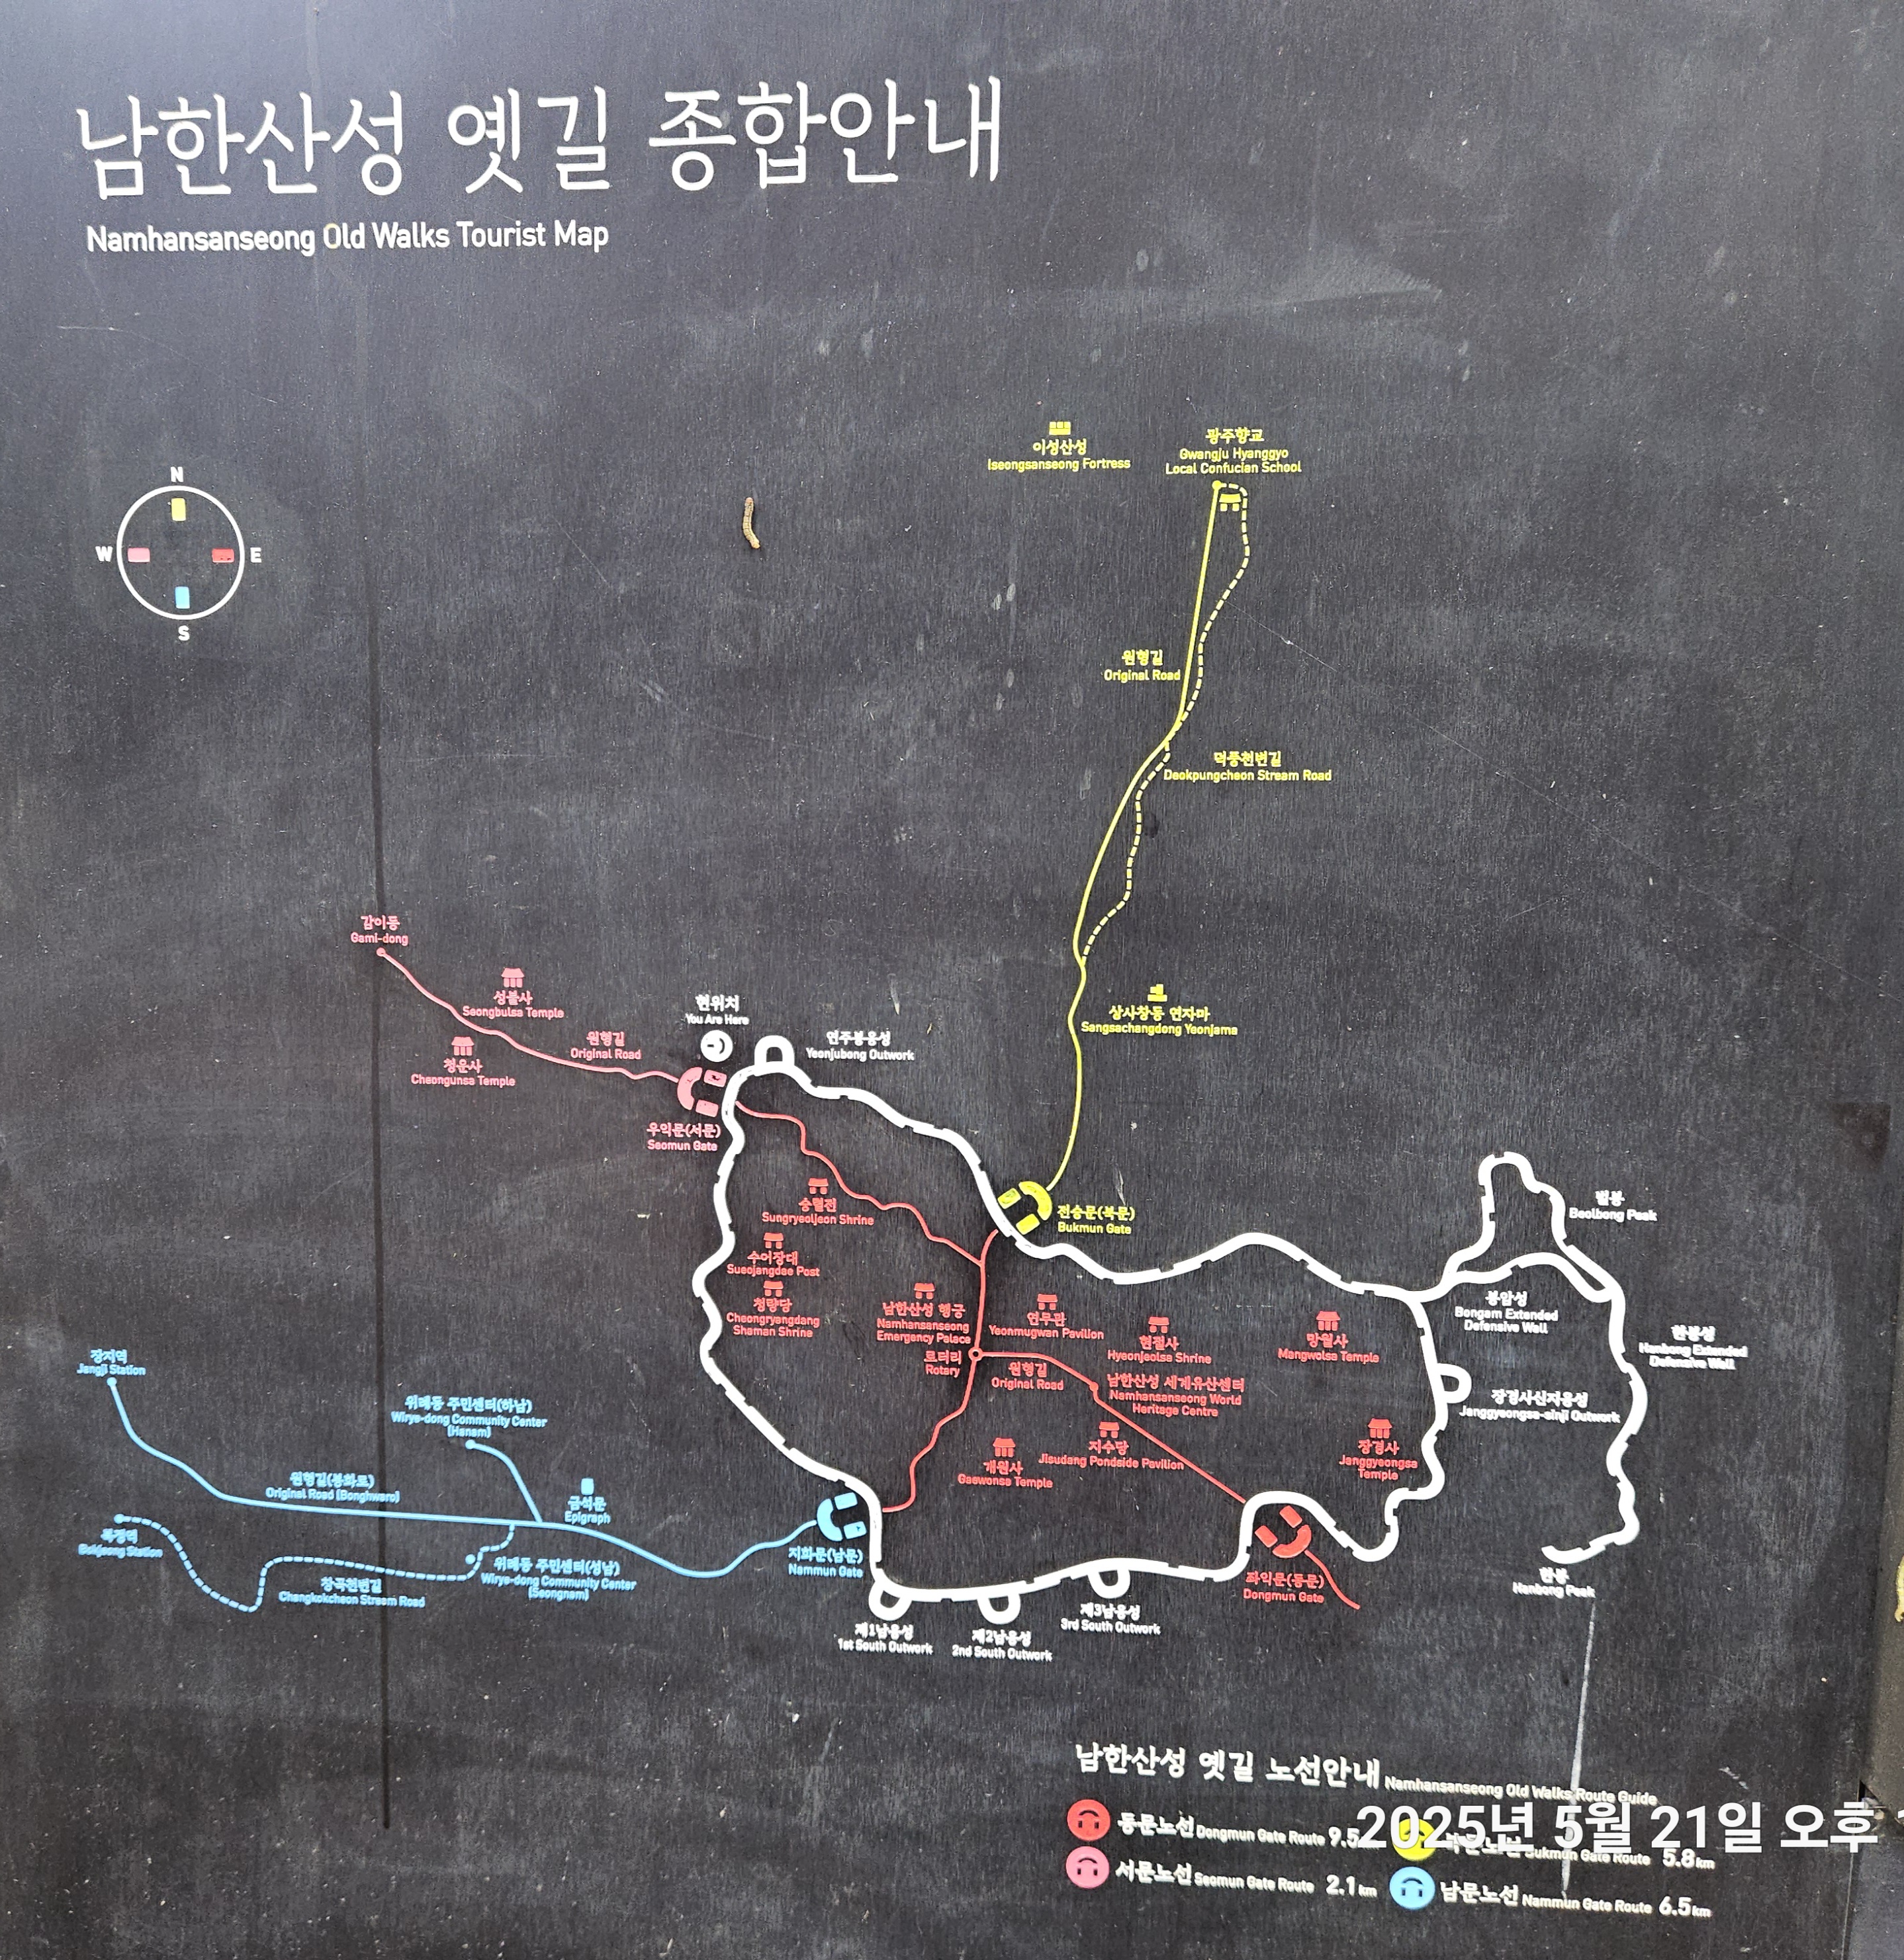 남한산성 옛길 종합안내
Namhansanseong Old Walks Tourist Map
N
W
E
S
이성산성
Iseongsanseong Fortress
광주향교
Gwangju Hyanggyo
Local Confucian School
원형길
Original Road
덕풍천변길
Deokpungcheon Stream Road
상사창동 연자마
Sangsachangdong Yeonjama
전승문(북문)
Bukmun Gate
감이동
Gami-dong
성불사
Seongbulsa Temple
청운사
Cheongunsa Temple
원형길
Original Road
현위치
You Are Here
우익문(서문)
Seomun Gate
연주봉옹성
Yeonjubong Outwork
벌봉
Beolbong Peak
봉암성
Bongam Extended
Defensive Wall
한봉성
Hanbong Extended
Defensive Wall
장경사신지옹성
Janggyeongsa-sinji Outwork
한봉
Hanbong Peak
숭렬전
Sungryeoljeon Shrine
수어장대
Sueojangdae Post
청량당
Cheongryangdang
Shaman Shrine
남한산성 행궁
Namhansanseong
Emergency Palace
로터리
Rotary
연무관
Yeonmugwan Pavilion
원형길
Original Road
현절사
Hyeonjeolsa Shrine
남한산성 세계유산센터
Namhansanseong World
Heritage Centre
망월사
Mangwolsa Temple
지수당
Jisudang Pondside Pavilion
개원사
Gaewonsa Temple
장경사
Janggyeongsa
Temple
좌익문(동문)
Dongmun Gate
장지역
Jangji Station
위례동 주민센터(하남)
Wirye-dong Community Center
(Hanam)
원형길(봉화로)
Original Road (Bonghwaro)
금석문
Epigraph
복정역
Bokjeong Station
창곡천변길
Changkokcheon Stream Road
위례동 주민센터(성남)
Wirye-dong Community Center
(Seongnam)
지화문(남문)
Nammun Gate
제1남옹성
1st South Outwork
제2남옹성
2nd South Outwork
제3남옹성
3rd South Outwork
남한산성 옛길 노선안내 Namhansanseong Old Walks Route Guide
동문노선 Dongmun Gate Route 9.5
북문노선 Bukmun Gate Route 5.8km
서문노선 Seomun Gate Route 2.1km
남문노선 Nammun Gate Route 6.5km
2025년 5월 21일 오후